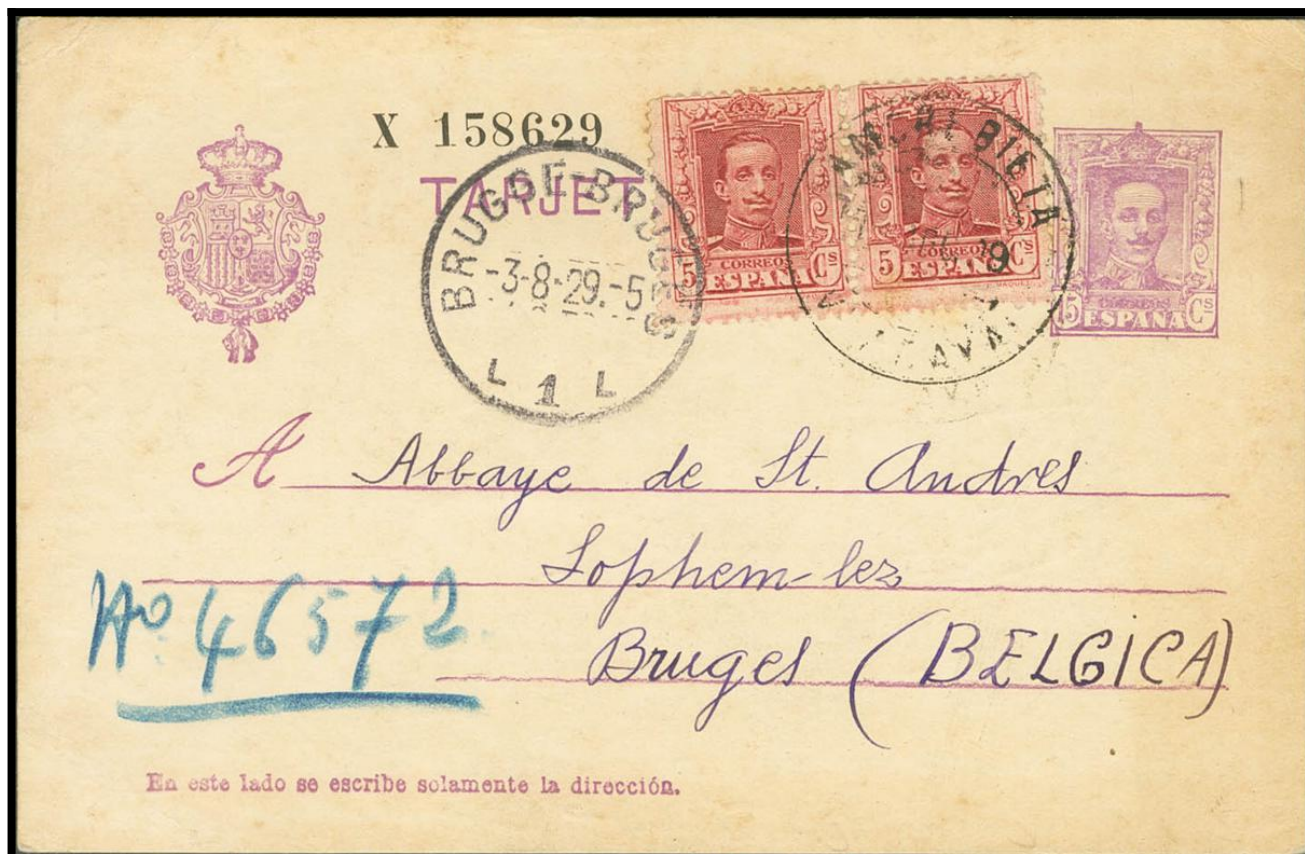 X 158629
TARJET
BRUGGE-BRUGES
-3-8-29.-5
L 1 L
5 CORREOS Cs
ESPAÑA
5 CORREOS Cs
ESPAÑA
15 CORREOS Cs
ESPAÑA
A Abbaye de St. Andres
Lophem-lez
Bruges (BELGICA)
Nº 46572
En este lado se escribe solamente la dirección.